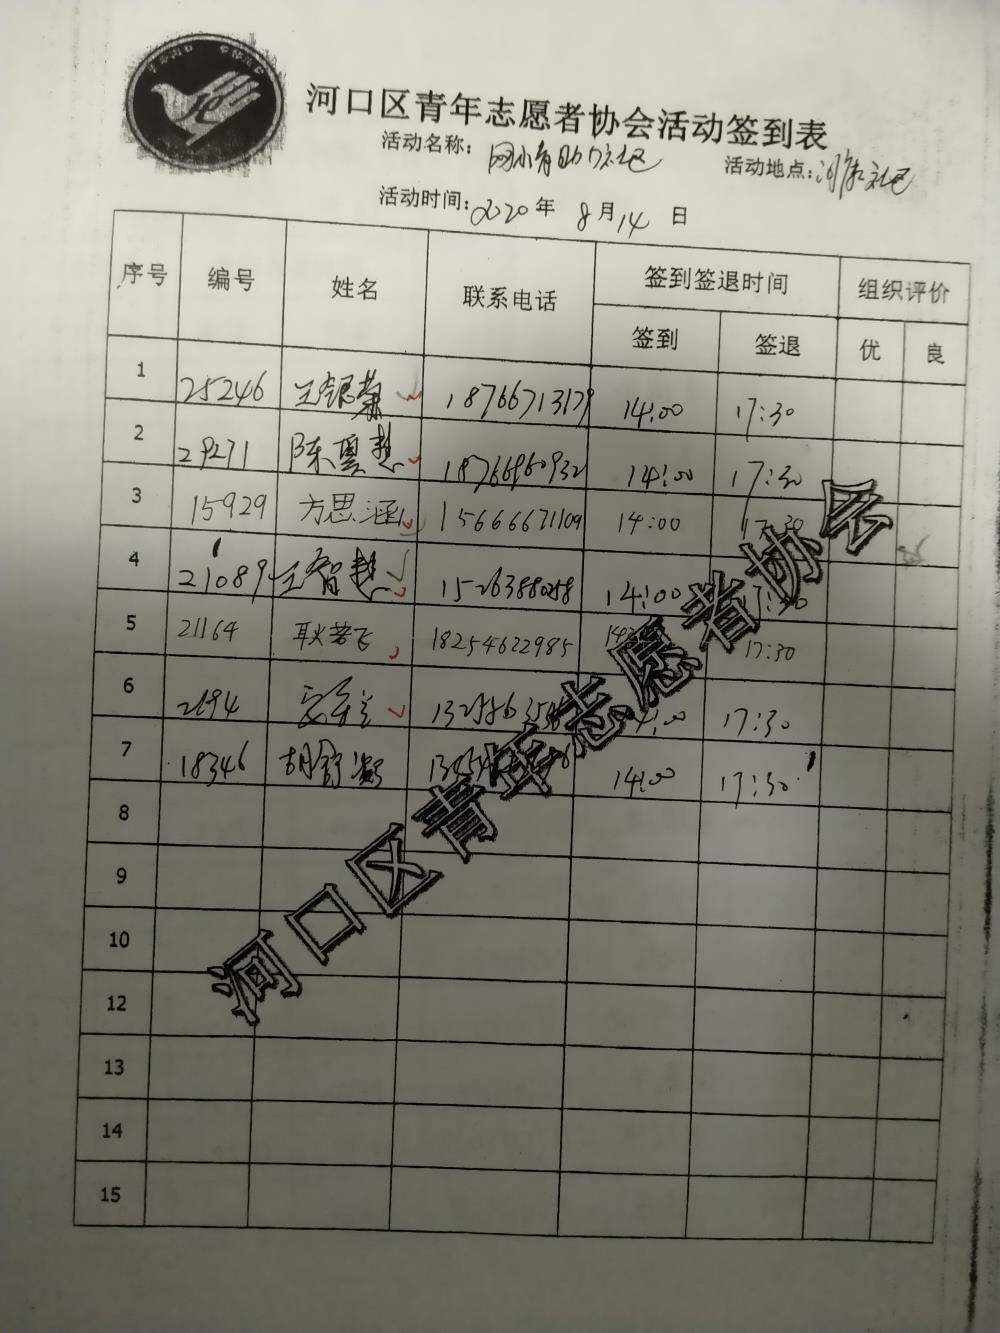 河口区青年志愿者协会活动签到表
活动名称: 社区 活动地点: 社区
活动时间: 2020 年 8 月 14 日
序号 编号 姓名 联系电话 签到签退时间 组织评价
签到 签退 优 良
1 25246 王银蒙 18766713179 14:00 17:30
2 29271 陈 慧 14:00 17:30
3 15929 方思涵 15666671109 14:00 17:30
4 21089 王智慧 15263880258 14:00 17:30
5 21164 耿若飞 18254622985 17:30
6 17:30
7 18346 胡 14:00 17:30
8
9
10
12
13
14
15
河口区青年志愿者协会